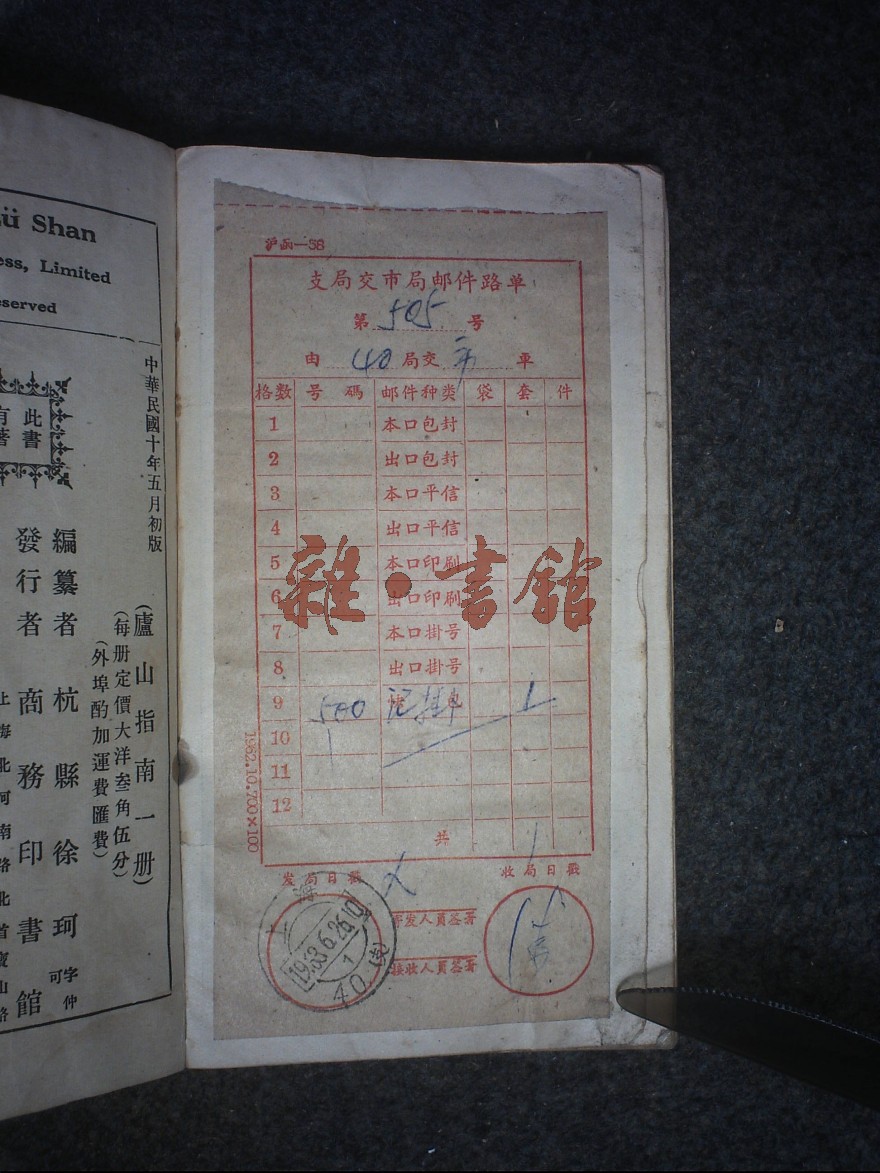 ü Shan
ess, Limited
eserved
中華民國十年五月初版
此書
有著
(廬山指南一册)
(每册定價大洋叁角伍分)
(外埠酌加運費匯費)
編纂者 杭縣徐珂 字仲可
發行者 商務印書館
上海北河南路北首寶山路
沪函—58
支局交市局邮件路单
第 505 号
由 40 局交 市 車
格数 号碼 邮件种类 袋 套 件
1 本口包封
2 出口包封
3 本口平信
4 出口平信
5 本口印刷
6 出口印刷
7 本口掛号
8 出口掛号
9 500 包 1
10
11
12
共 1
1962.10.700×100
发局日戳 收局日戳
寄发人員签署
接收人員签署
上海
1963.6.26.10
1
40(支)
雜·書館